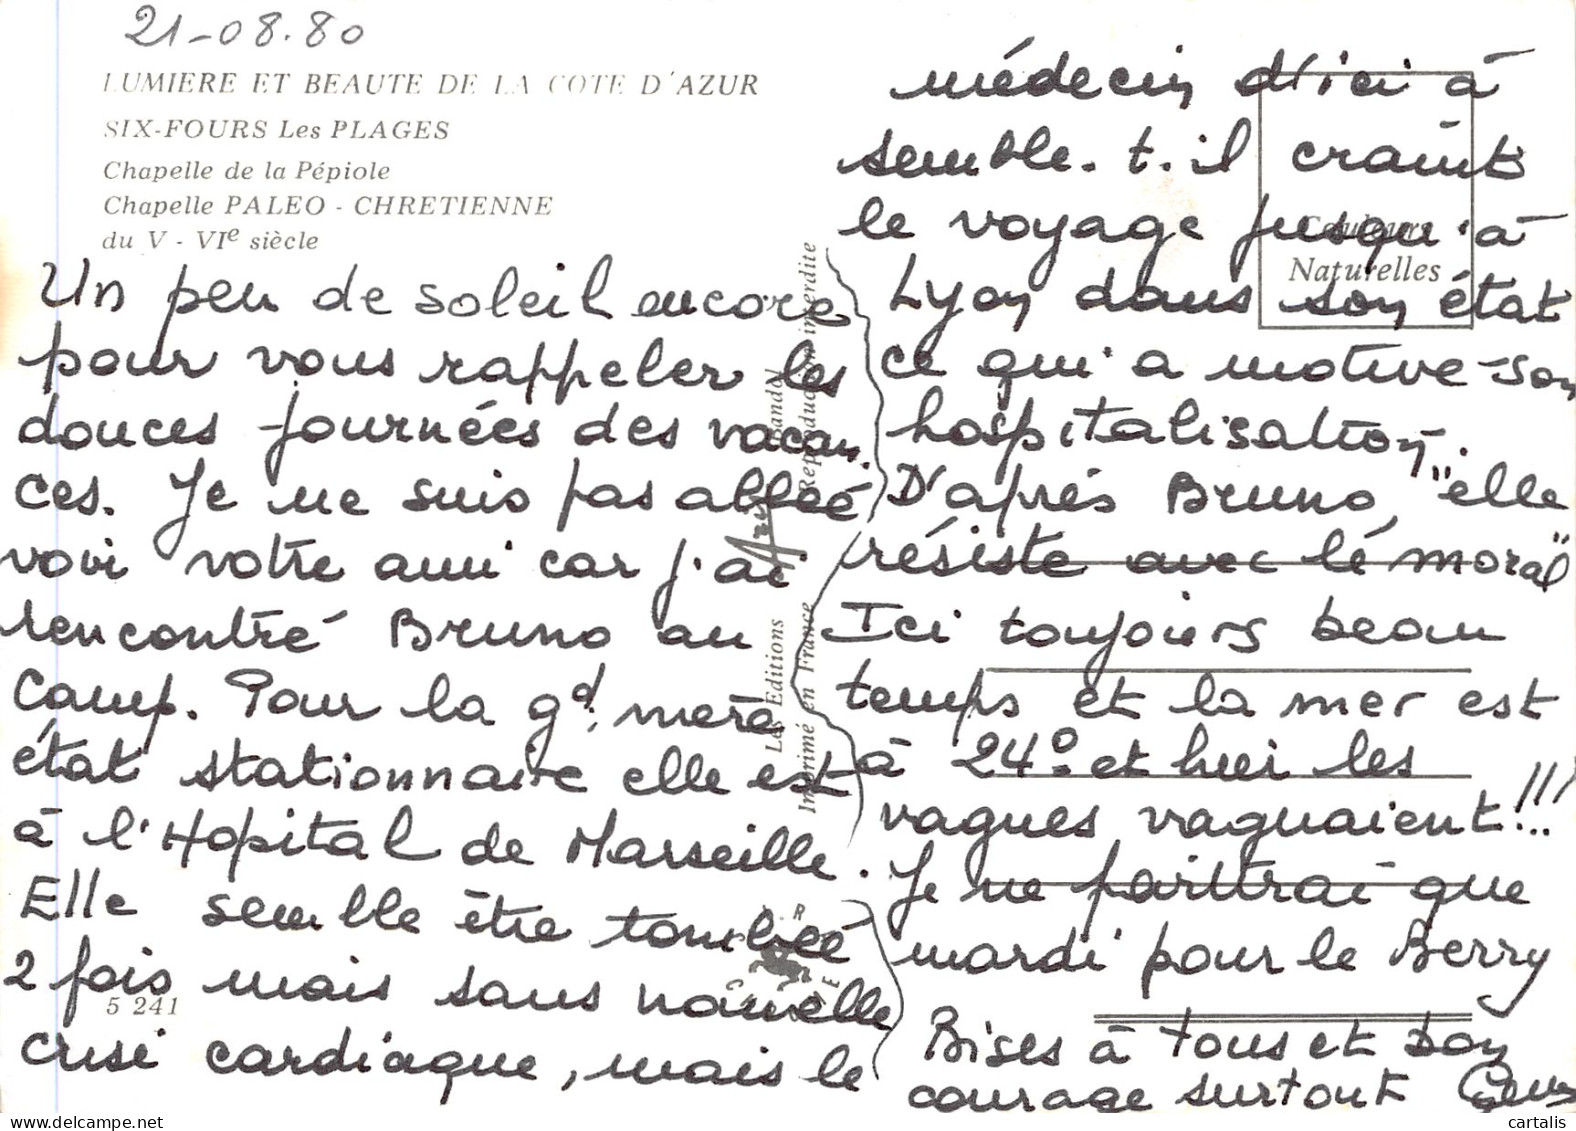 21-08.80
LUMIERE ET BEAUTE DE LA COTE D'AZUR
SIX-FOURS Les PLAGES
Chapelle de la Pépiole
Chapelle PALEO - CHRETIENNE
du V - VIe siècle
Un peu de soleil encore
pour vous rappeler les
douces journées des vacan.
ces. Je ne suis pas allée
voir votre ami car j'ai
rencontré Bruno au
camp. Pour la gd. mère
état stationnaire elle est
à l'Hopital de Marseille.
Elle semble être tombée
2 fois mais sans nouvelle
crise cardiaque, mais le
5 241
Les Editions Bandol
Imprimé en France Reproduction interdite
médecin d'ici à
semble.t.il craint
le voyage jusqu'à
Lyon dans son état
ce qui a motivé son
hospitalisation.
D'après Bruno, "elle
résiste avec le moral"
Ici toujours beau
temps et la mer est
à 24° et hier les
vagues vaguaient!!!..
Je ne partirai que
mardi pour le Berry
Bises à tous et bon
courage surtout
Couleurs
Naturelles
www.delcampe.net
cartalis